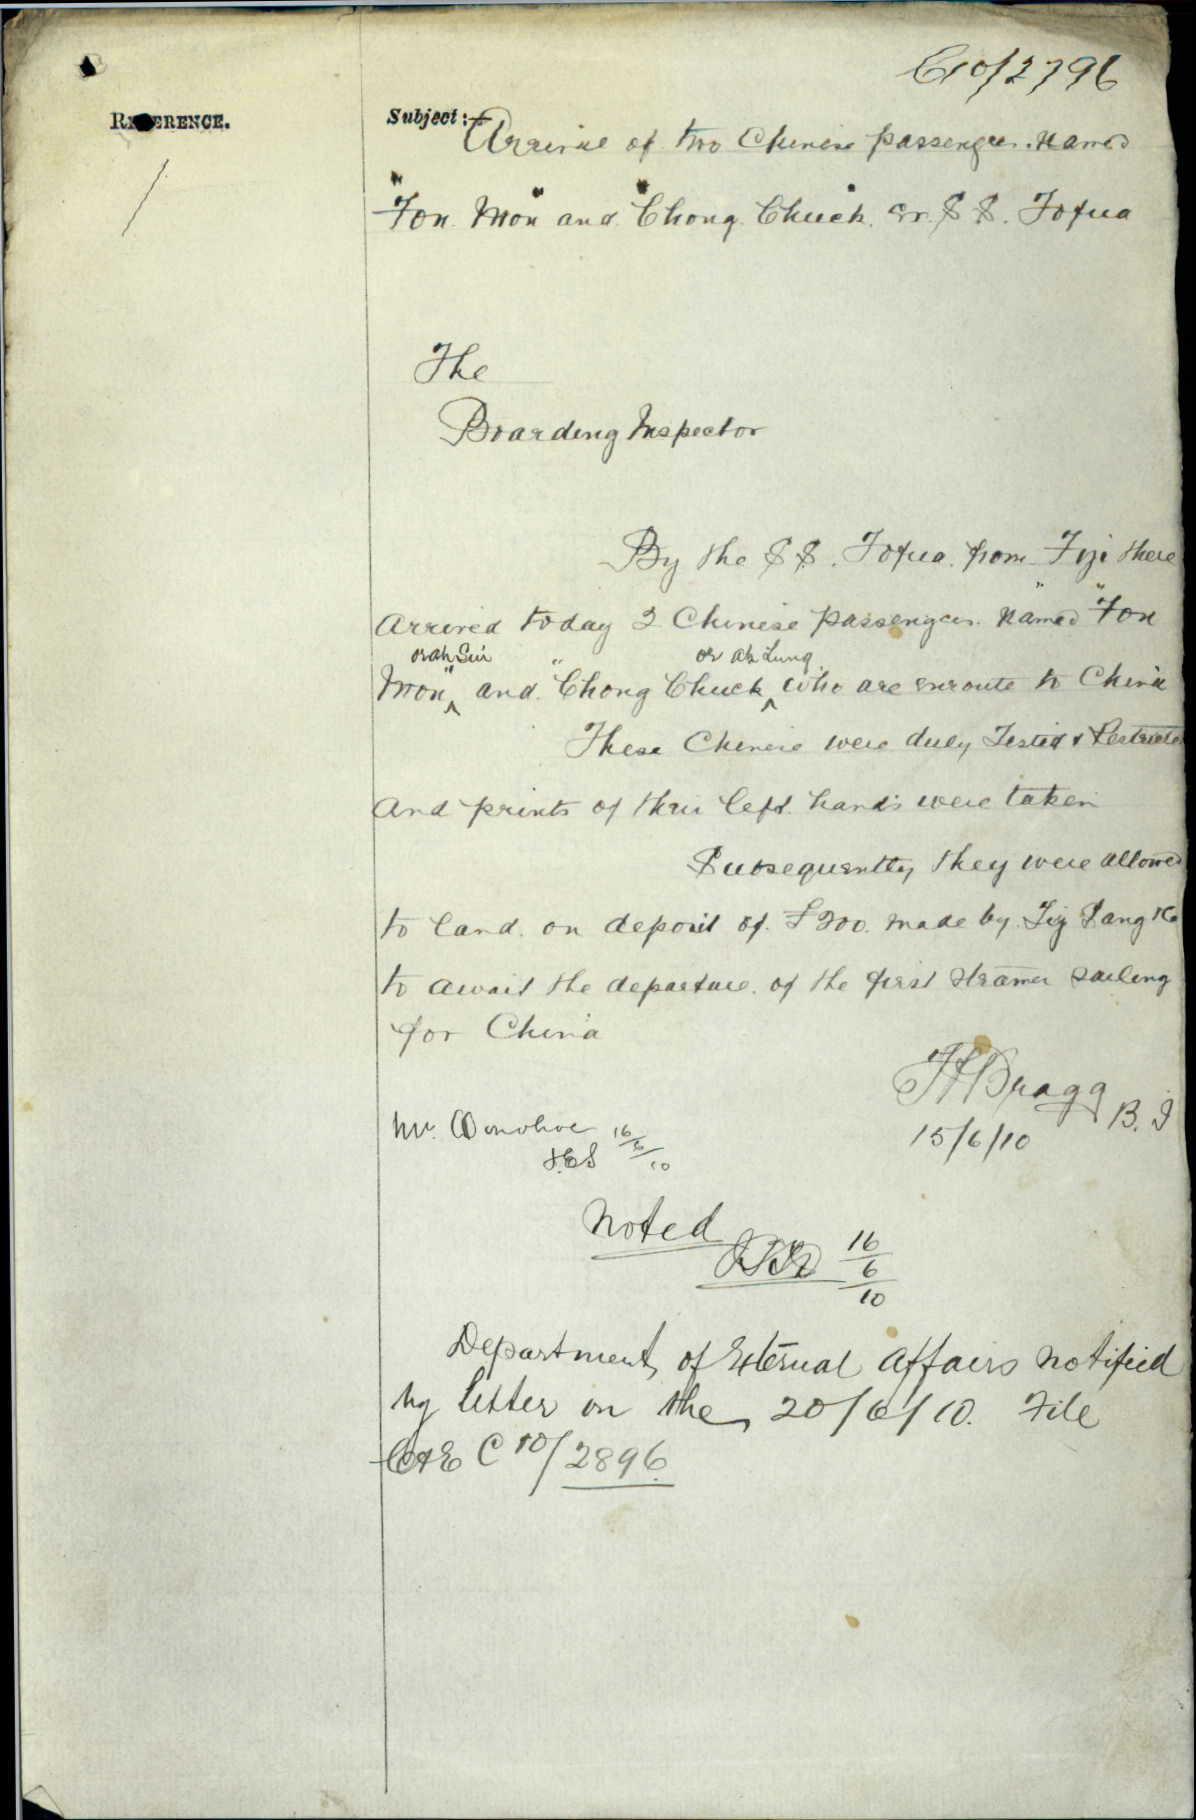 C10/2796
REFERENCE.
Subject:-
Arrival of two Chinese passengers. Named
"Fon Mon" and "Chong Chuck" ex. S S. Tofua
The
Boarding Inspector
By the S S. Tofua. from Fiji there
arrived today 2 Chinese passengers. Named "Fon
or Ah Sin or Ah Lung
Mon" ^ and "Chong Chuck ^ who are enroute to China
These Chinese were duly Tested & Restricted
and prints of their left hands were taken
Subsequently they were allowed
to land. on deposit of £200. made by Tiy Sang & Co
to await the departure of the first steamer sailing
for China
Bragg B. I
15/6/10
Mr. Donohoe 16/6/10
Noted
16/6/10
Department of External Affairs notified
by letter on the 20/6/10. File
C&E C10/2896.